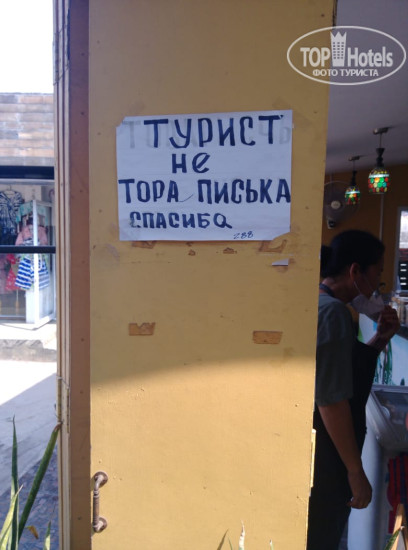 TOPHotels
ФОТО ТУРИСТА
ТУРИСТ
не
ТОРА ПИСЬКА
СПАСИБА